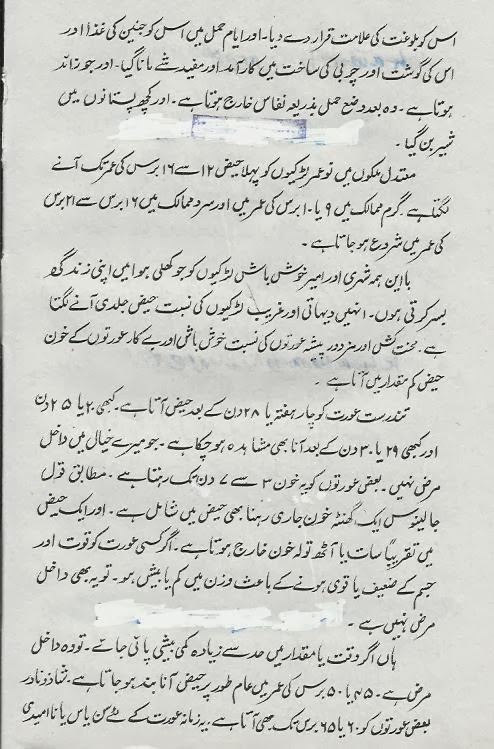 اس کو بلوغت کی علامت قرار دے دیا۔ اور ایام حمل میں اس کو جنین کی غذا اور
اس کی گوشت اور چربی کی ساخت میں کارآمد اور مفید شے مانا گیا۔ اور جو زائد
ہوتا ہے۔ وہ بعد وضع حمل بذریعہ نفاس خارج ہوتا ہے۔ اور کچھ پستانوں میں
شیر بن گیا۔
معتدل ملکوں میں نو عمر لڑکیوں کو پہلا حیض ۱۲ سے ۱۶ برس کی عمر تک آنے
لگتا ہے۔ گرم ممالک میں ۹ یا ۱۰ برس کی عمر میں اور سرد ممالک میں ۱۶ برس سے ۲۱ برس
کی عمر میں شروع ہو جاتا ہے۔
باایں ہمہ شہری اور امیر خوش باش لڑکیوں کو جو کھلی ہوا میں اپنی زندگی
بسر کرتی ہوں۔ انہیں دیہاتی اور غریب لڑکیوں کی نسبت حیض جلدی آنے لگتا
ہے۔ محنت کش اور مزدور پیشہ عورتوں کی نسبت خوش باش اور بے کار عورتوں کے خون
حیض کم مقدار میں آتا ہے۔
تندرست عورت کو چار ہفتہ یا ۲۸ دن کے بعد حیض آتا ہے۔ کبھی ۲۰ یا ۲۵ دن
اور کبھی ۲۹ یا ۳۰ دن کے بعد آنا بھی مشاہدہ ہو چکا ہے۔ جو میرے خیال میں داخل
مرض نہیں۔ بعض عورتوں کو یہ خون ۳ سے ۷ دن تک رہتا ہے۔ مطابق قول
جالینوس ایک گھنٹہ خون جاری رہنا بھی حیض میں شامل ہے۔ اور ایک حیض
میں تقریباً سات یا آٹھ تولہ خون خارج ہوتا ہے۔ اگر کسی عورت کو قوت اور
جسم کے ضعیف یا قوی ہونے کے باعث وزن میں کم یا بیش ہو۔ تو یہ بھی داخل
مرض نہیں ہے۔
ہاں اگر وقت یا مقدار میں حد سے زیادہ کمی بیشی پائی جائے۔ تو وہ داخل
مرض ہے۔ ۴۵ یا ۵۰ برس کی عمر میں عام طور پر حیض آنا بند ہو جاتا ہے۔ شاذ و نادر
بعض عورتوں کو ۶۰ یا ۶۵ برس تک بھی آتا ہے۔ یہ زمانہ عورت کے لئے سن یاس یا ناامیدی